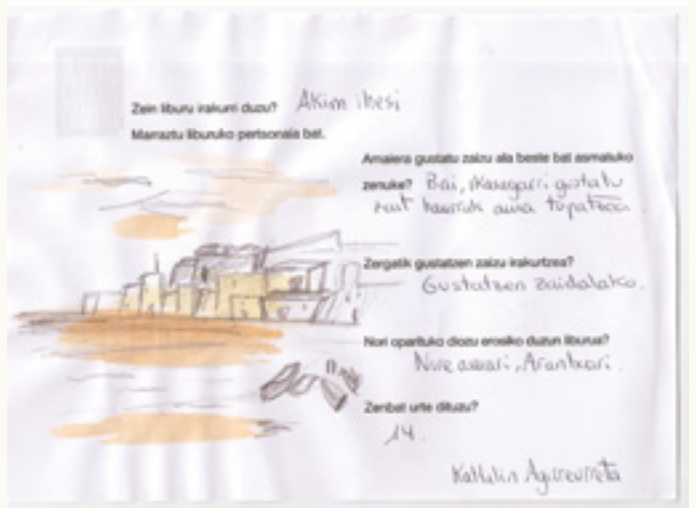 Zein liburu irakurri duzu? Akim ihesi
Marraztu liburuko pertsonaia bat.
Amaiera gustatu zaizu ala beste bat asmatuko
zenuke? Bai, ikaragarri gustatu
zait haurrak ama topatzea.
Zergatik gustatzen zaizu irakurtzea?
Gustatzen zaidalako.
Nori oparituko diozu erosiko duzun liburua?
Nire amari, Arantxari.
Zenbat urte dituzu?
14.
Kattalin Agirreurreta